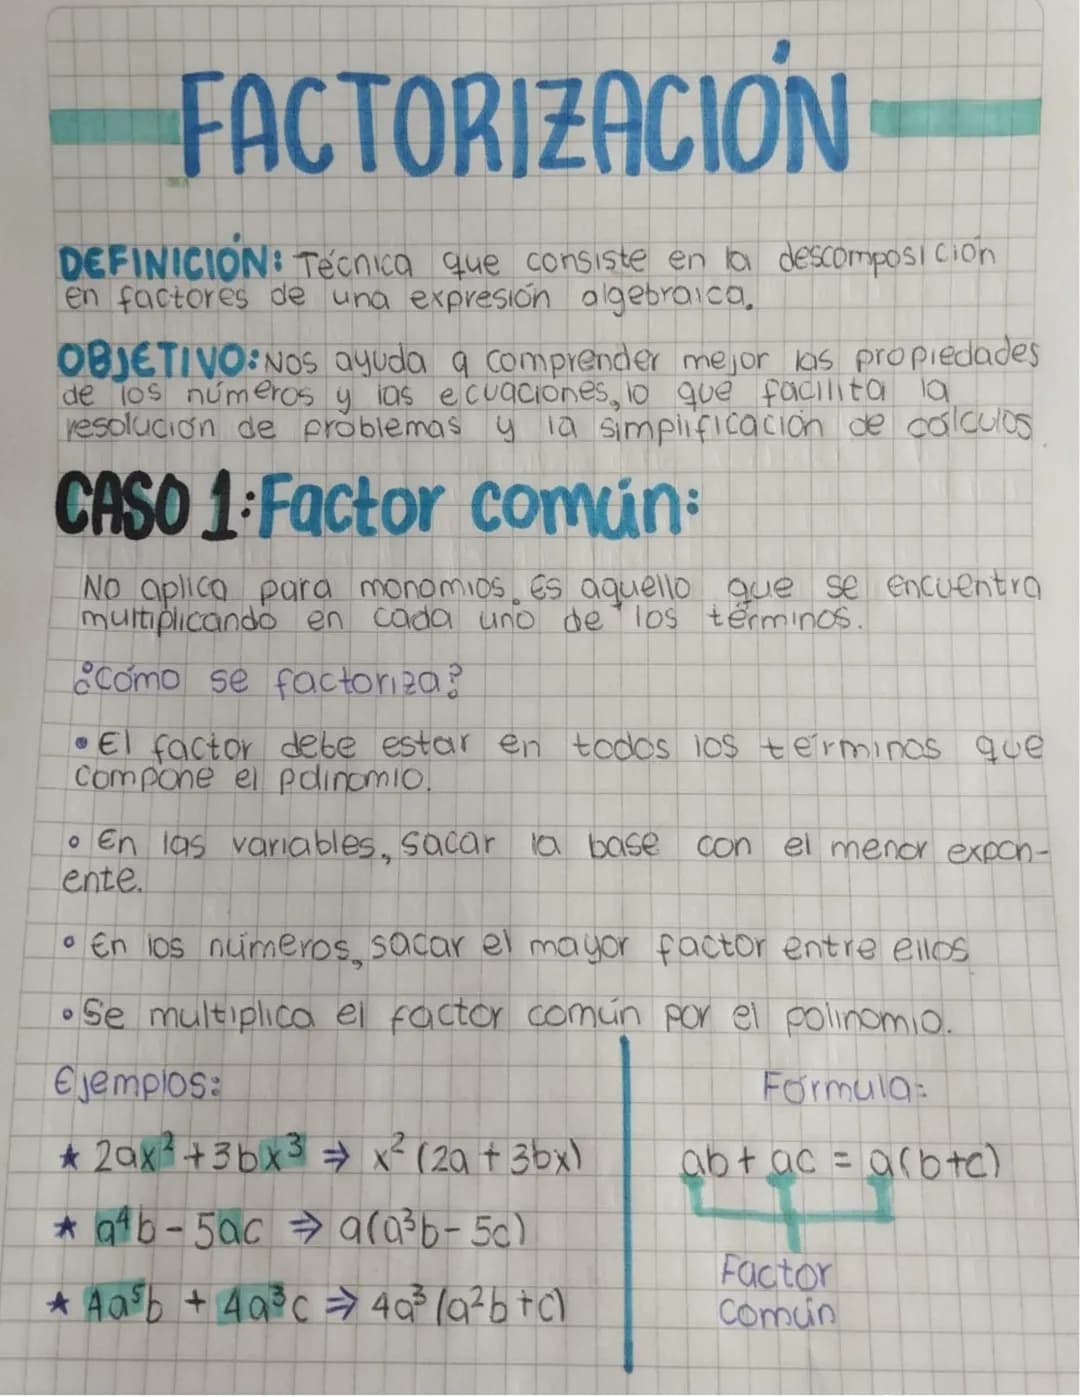 FACTORIZACIÓN
DEFINICIÓN: Técnica que consiste en la descomposición
en factores de una expresión algebraica.
OBJETIVO: Nos ayuda a comprender mejor las propiedades
de los números y las ecuaciones, lo que facilita la
resolución de problemas y la simplificación de cálculos
CASO 1: Factor común:
No aplica para monomios. Es aquello que se encuentra
multiplicando en cada uno de los términos.
¿Cómo se factoriza?
• El factor debe estar en todos los términos que
compone el polinomio.
• En las variables, sacar la base con el menor expon-
ente.
• En los números, sacar el mayor factor entre ellos
• Se multiplica el factor común por el polinomio.
Ejemplos:
★ 2ax² + 3bx³ ⇒ x² (2a + 3bx)
★ a⁴b - 5ac ⇒ a(a³b - 5c)
★ 4a⁵b + 4a³c ⇒ 4a³ (a²b + c)
Fórmula:
ab + ac = a(b+c)
Factor
Común